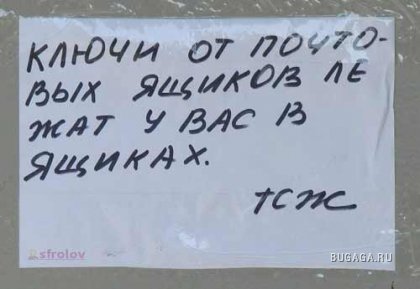 КЛЮЧИ ОТ ПОЧТО-
ВЫХ ЯЩИКОВ ЛЕ
ЖАТ У ВАС В
ЯЩИКАХ.
ТСЖ
sfrolov
BUGAGA.RU